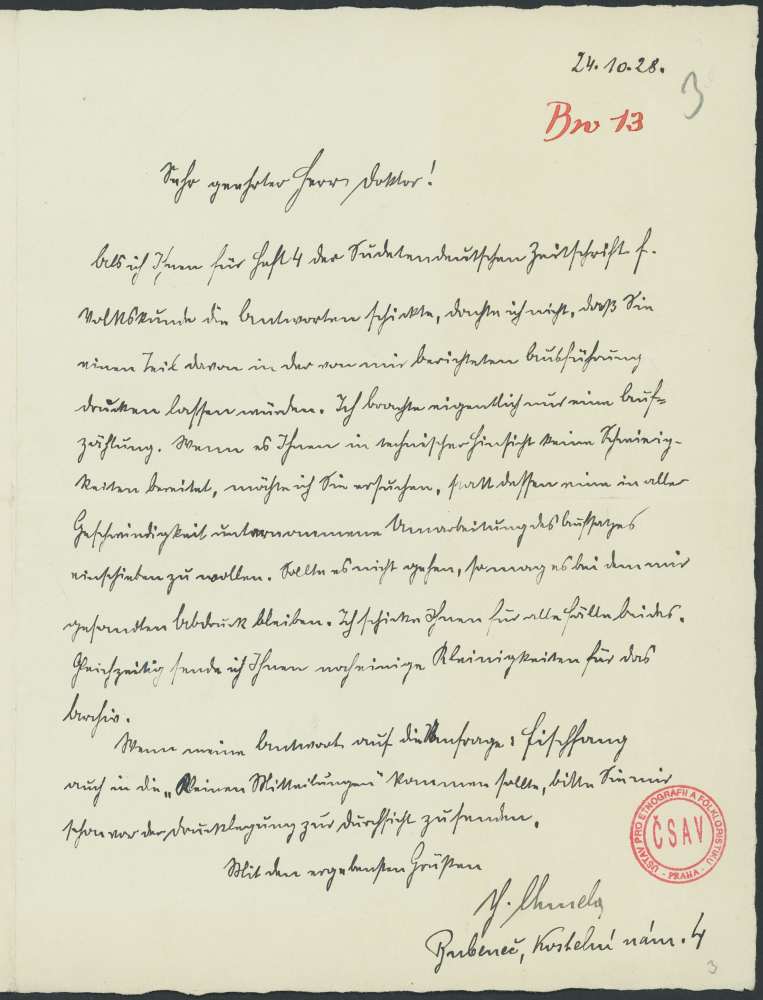 24.10.28.
3
Br 13
Sehr geehrter Herr Doktor!
Als ich Ihnen für Heft 4 der Sudetendeutschen Zeitschrift f.
Volkskunde die Antworten schickte, dachte ich nicht, daß Sie
einen Teil davon in der von mir berichteten Ausführung
drucken lassen würden. Ich brachte eigentlich nur eine Auf-
zählung. Wenn es Ihnen in technischer Hinsicht keine Schwierig-
keiten bereitet, möchte ich Sie ersuchen, statt dessen eine in aller
Geschwindigkeit unternommene Umarbeitung des Aufsatzes
einschieben zu wollen. Sollte es nicht gehen, so mag es bei dem mir
gesandten Abdruck bleiben. Ich schicke Ihnen für alle Fälle beides.
Gleichzeitig sende ich Ihnen noch einige Kleinigkeiten für das
Archiv.
Wenn meine Antwort auf die Umfrage: Fischfang
auch in die „Kleinen Mitteilungen" kommen sollte, bitte Sie mir
schon vor der Drucklegung zur Durchsicht zu senden.
Mit den ergebensten Grüßen
Bubeneč, Kostelní nám. 4
ÚSTAV PRO ETNOGRAFII A FOLKLORISTIKU
ČSAV
- PRAHA -
3